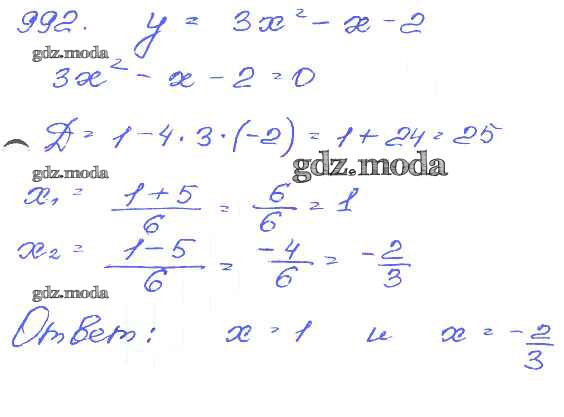 992. y = 3x² - x - 2
gdz.moda
3x² - x - 2 = 0
D = 1 - 4 · 3 · (-2) = 1 + 24 = 25
gdz.moda
gdz.moda
x₁ = (1+5)/6 = 6/6 = 1
x₂ = (1-5)/6 = -4/6 = -2/3
gdz.moda
Ответ: x = 1 и x = -2/3